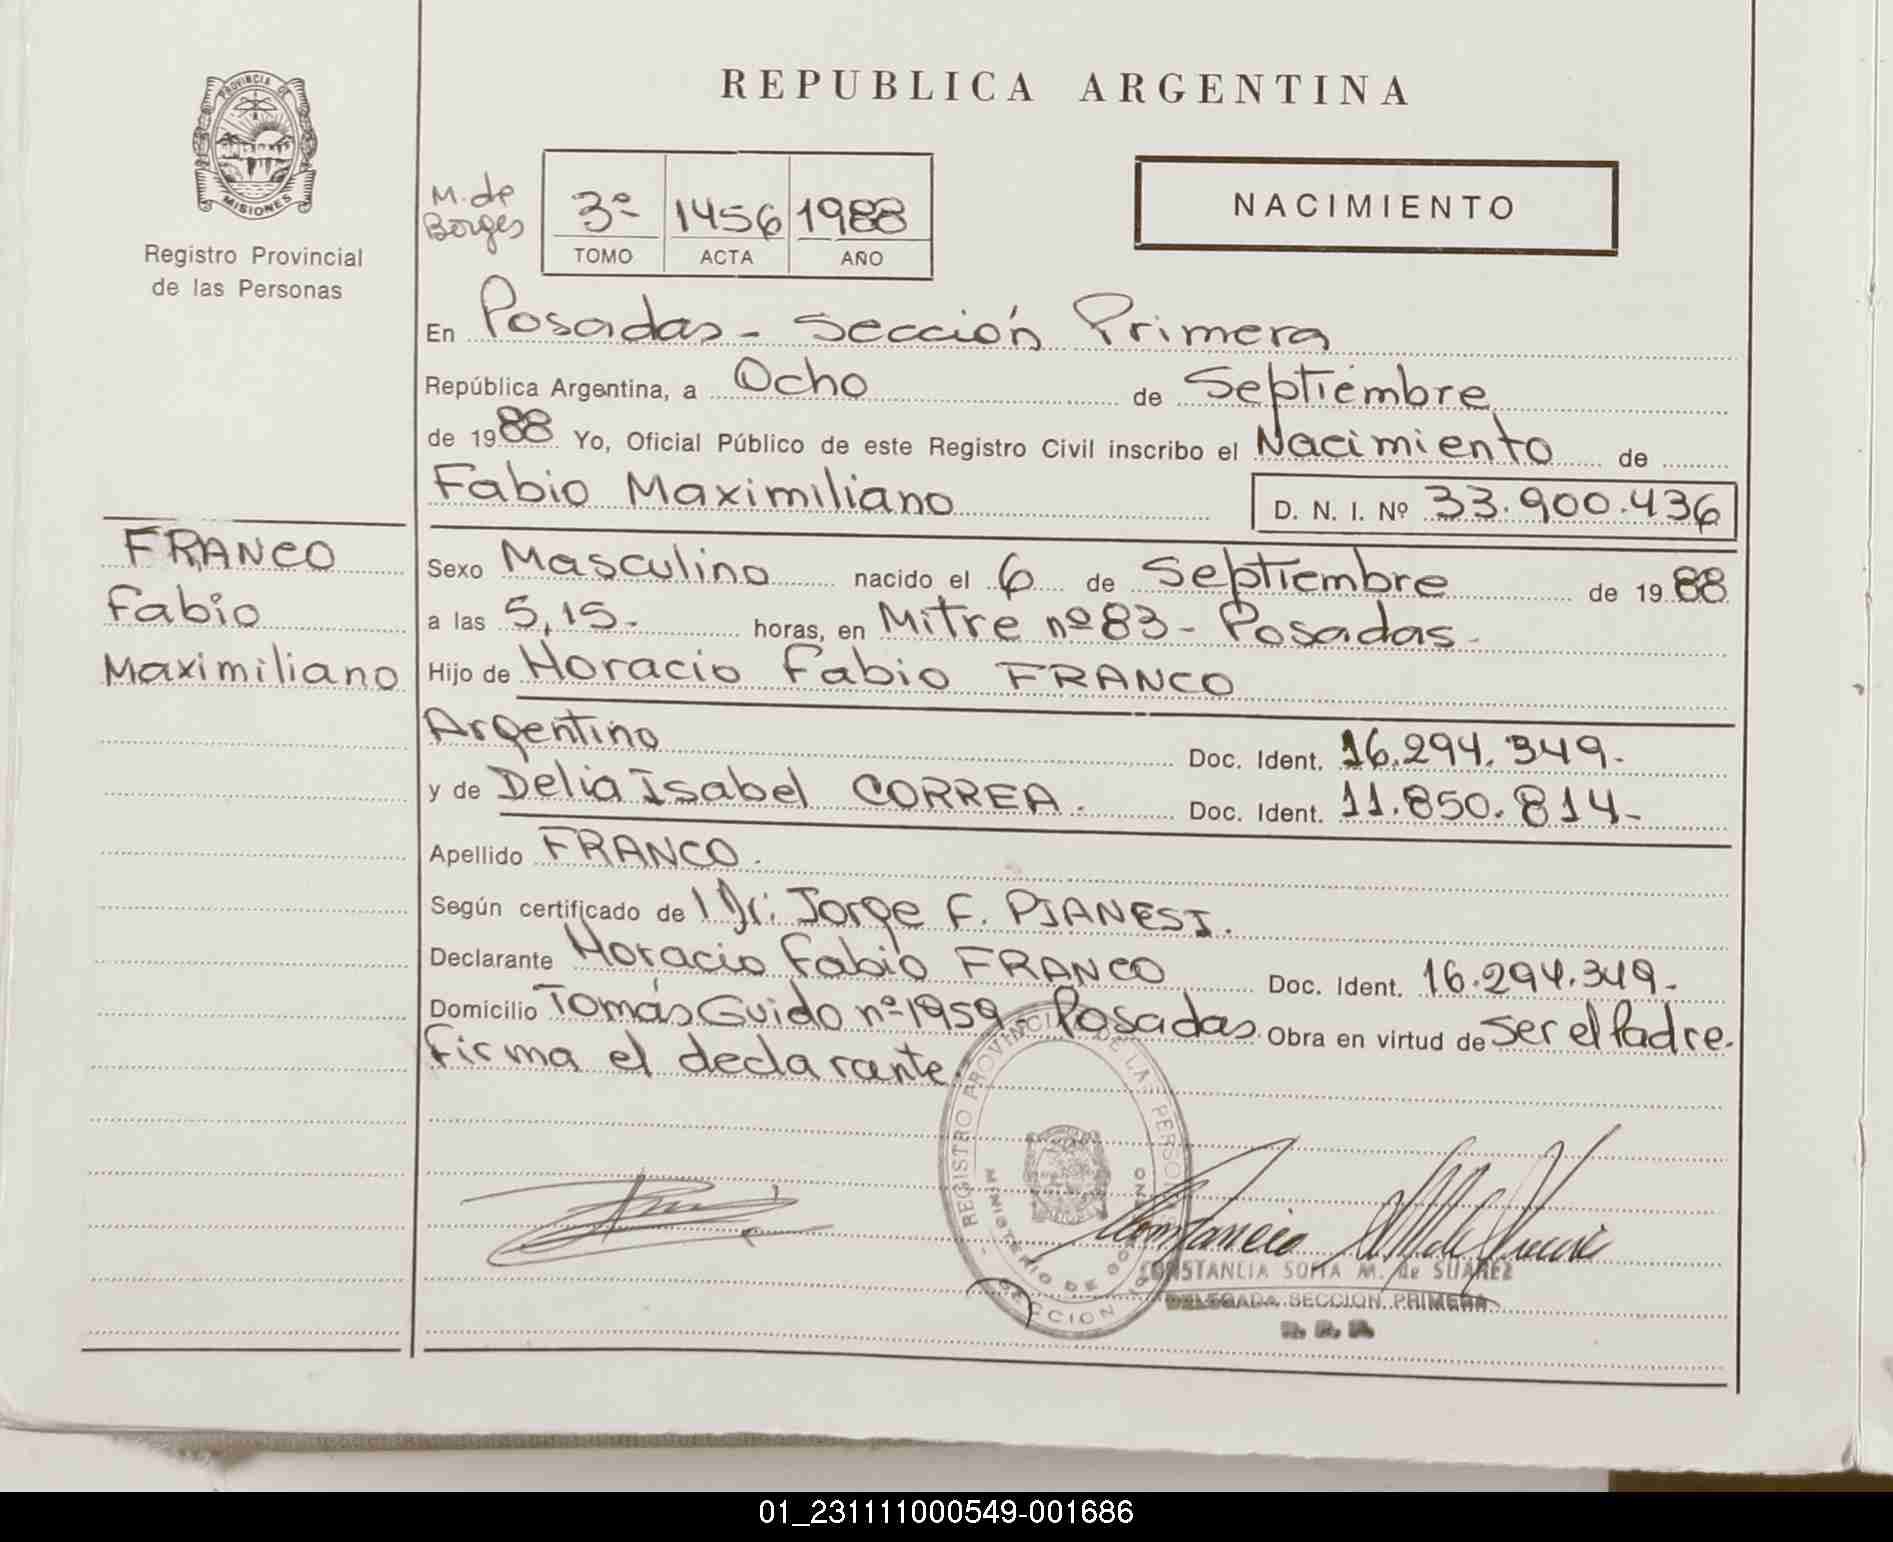 REPUBLICA ARGENTINA
PROVINCIA DE
MISIONES
Registro Provincial
de las Personas
M. de
Borges
3º 1456 1988
TOMO ACTA AÑO
NACIMIENTO
En Posadas - Sección Primera
República Argentina, a Ocho de Septiembre
de 1988 Yo, Oficial Público de este Registro Civil inscribo el Nacimiento de
Fabio Maximiliano D. N. I. Nº 33.900.436
FRANCO
Fabio
Maximiliano
Sexo Masculino nacido el 6 de Septiembre de 1988
a las 5,15.- horas, en Mitre nº 83 - Posadas -
Hijo de Horacio Fabio FRANCO
Argentino Doc. Ident. 16.294.349.-
y de Delia Isabel CORREA. Doc. Ident. 11.850.814-
Apellido FRANCO.
Según certificado de Dr. Jorge F. PIANESI.
Declarante Horacio Fabio FRANCO Doc. Ident. 16.294.349.-
Domicilio Tomás Guido nº 1959 - Posadas. Obra en virtud de Ser el Padre.
Firma el declarante.
REGISTRO PROVINCIAL DE LAS PERSONAS
MINISTERIO DE GOBIERNO
SECCION 1º
CONSTANCIA SOFIA M. de SUAREZ
DELEGADA SECCION PRIMERA
R. P. P.
01_231111000549-001686